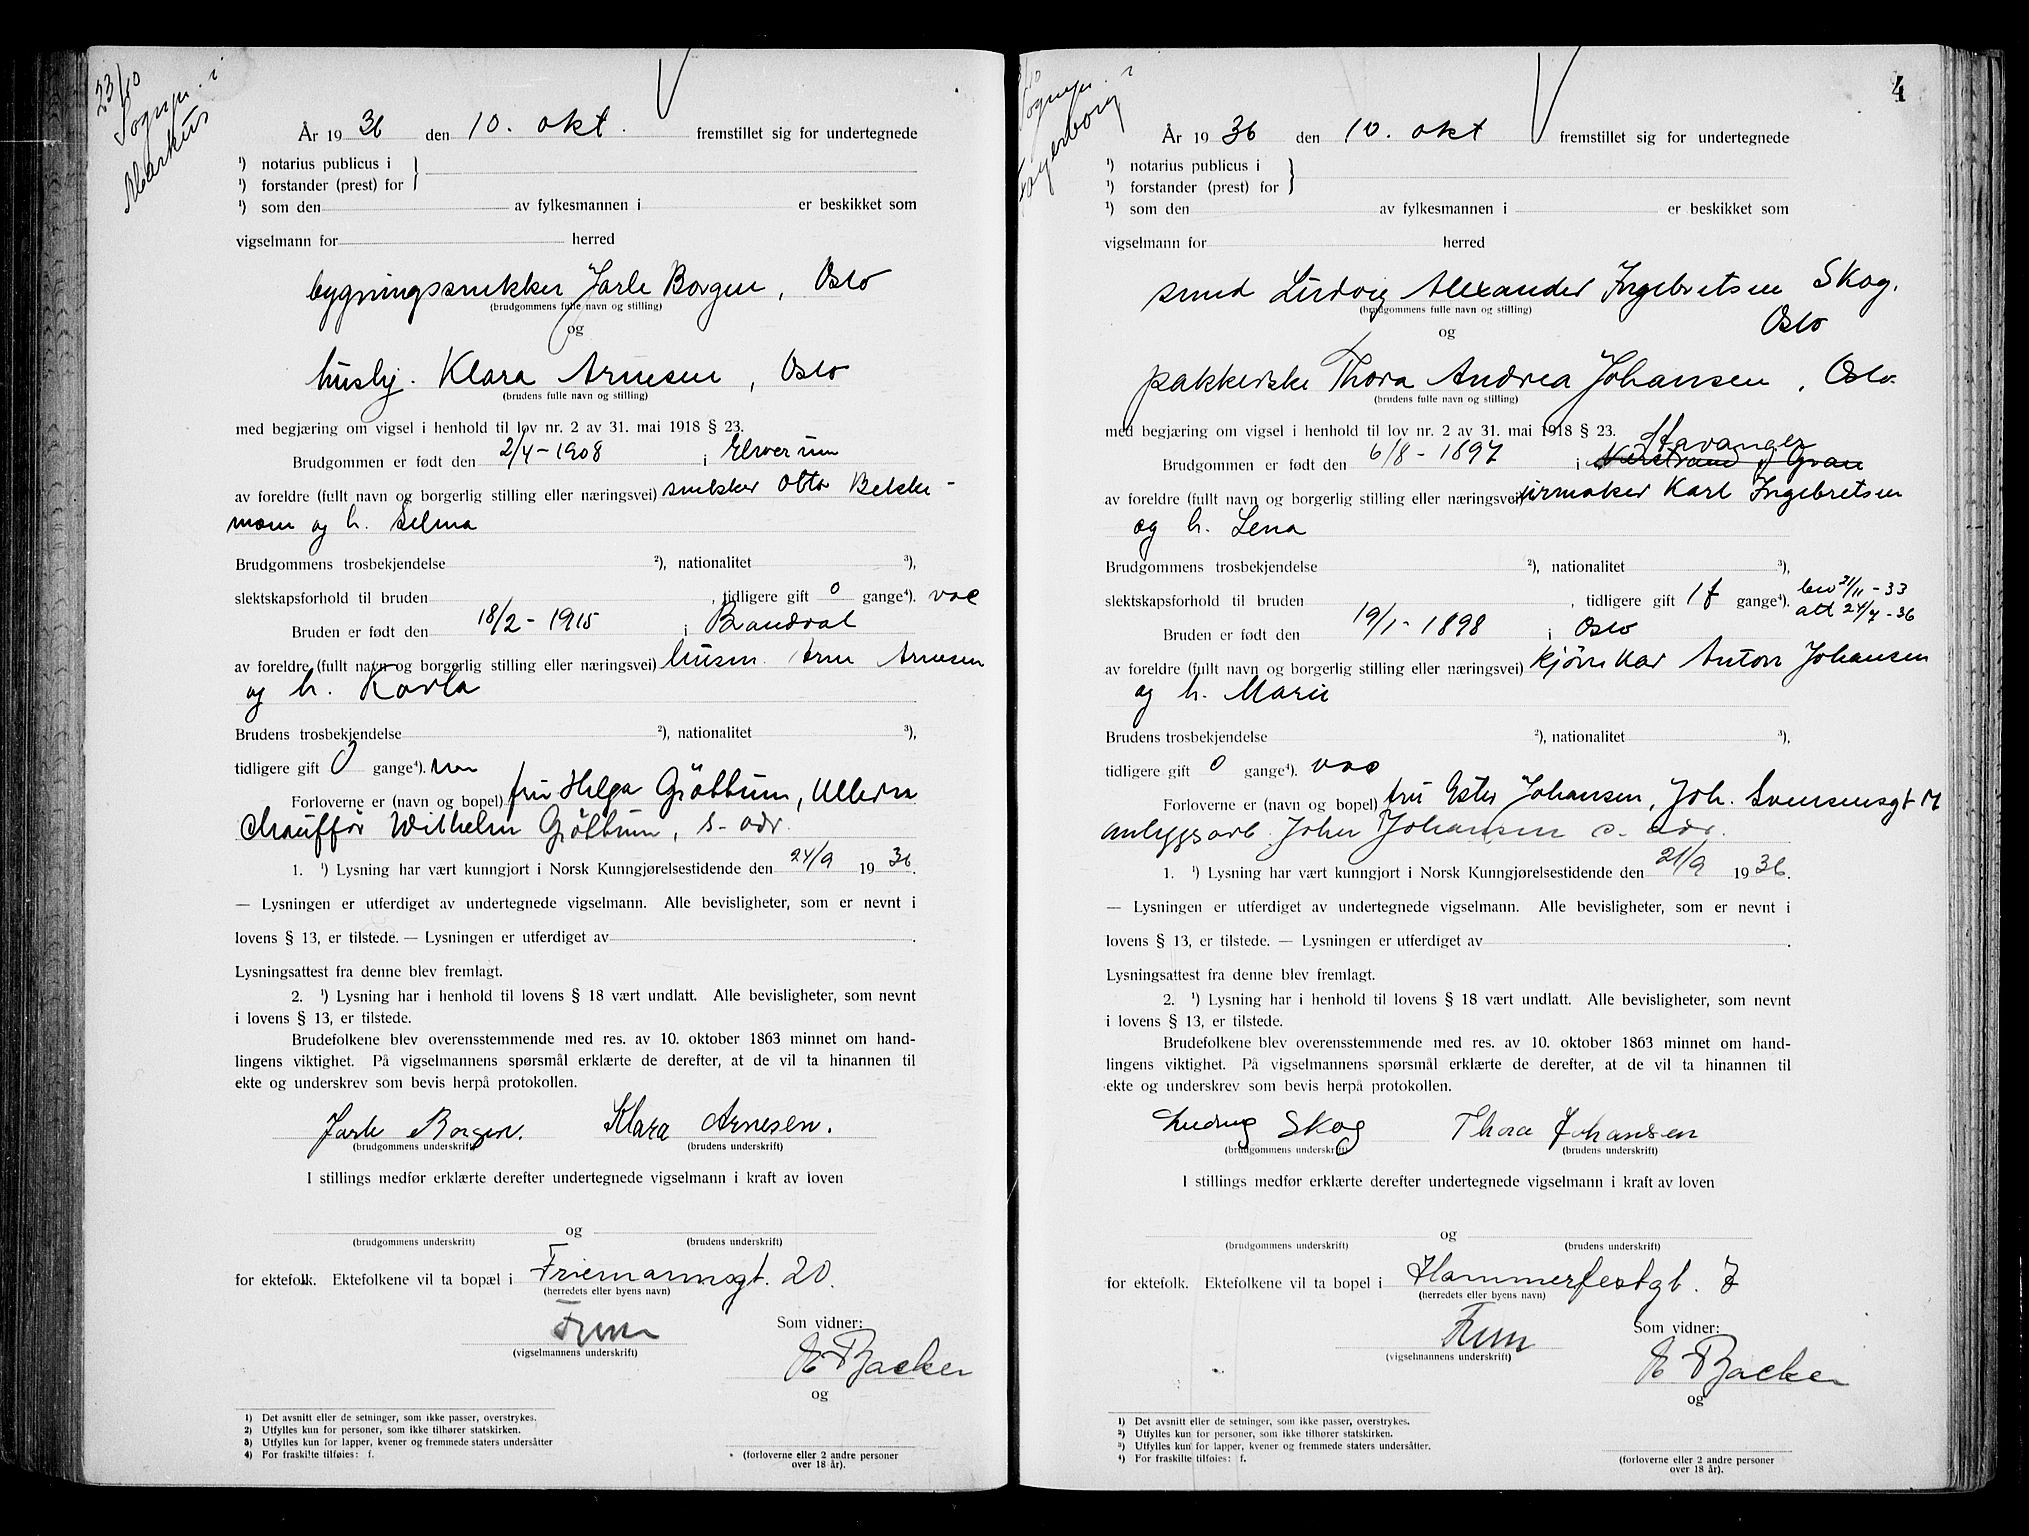 23/10
Sognepr. i
Markus
År 1936 den 10. okt. fremstillet sig for undertegnede
¹) notarius publicus i
¹) forstander (prest) for }
¹) som den av fylkesmannen i er beskikket som
vigselmann for herred
bygningssnekker Jarle Borgen, Oslo
(brudgommens fulle navn og stilling)
og
hushj. Klara Arnesen, Oslo
(brudens fulle navn og stilling)
med begjæring om vigsel i henhold til lov nr. 2 av 31. mai 1918 § 23.
Brudgommen er født den 2/4-1908 i Elverum
av foreldre (fullt navn og borgerlig stilling eller næringsvei) snekker Otto Bekke-
moen og h. Selma
Brudgommens trosbekjendelse ²), nationalitet ³),
slektskapsforhold til bruden , tidligere gift 0 gange⁴). vac
Bruden er født den 18/2-1915 i Brandval
av foreldre (fullt navn og borgerlig stilling eller næringsvei) husm. Arne Arnesen
og h. Karla
Brudens trosbekjendelse ²), nationalitet ³),
tidligere gift 0 gange⁴).
Forloverne er (navn og bopel) fru Helga Gröttum, Ullern
Chauffør Wilhelm Gröttum, s. adr.
1. ¹) Lysning har vært kunngjort i Norsk Kunngjørelsestidende den 24/9 1936.
— Lysningen er utferdiget av undertegnede vigselmann. Alle bevisligheter, som er nevnt i
lovens § 13, er tilstede. — Lysningen er utferdiget av .
Lysningsattest fra denne blev fremlagt.
2. ¹) Lysning har i henhold til lovens § 18 vært undlatt. Alle bevisligheter, som nevnt
i lovens § 13, er tilstede.
Brudefolkene blev overensstemmende med res. av 10. oktober 1863 minnet om hand-
lingens viktighet. På vigselmannens spørsmål erklærte de derefter, at de vil ta hinannen til
ekte og underskrev som bevis herpå protokollen.
Jarle Borgen. Klara Arnesen.
(brudgommens underskrift) (brudens underskrift)
I stillings medfør erklærte derefter undertegnede vigselmann i kraft av loven
og
(brudgommens underskrift) (brudens underskrift)
for ektefolk. Ektefolkene vil ta bopæl i Friemannsgt. 20.
(herredets eller byens navn)
Som vidner:
(vigselmannens underskrift)
Backer
og
1) Det avsnitt eller de setninger, som ikke passer, overstrykes.
2) Utfylles kun for personer, som ikke tilhører statskirken.
3) Utfylles kun for lapper, kvener og fremmede staters undersåtter
4) For fraskilte tilføies: f.
(forloverne eller 2 andre personer
over 18 år).
4
Sognepr. i
Fagerborg
År 1936 den 10. okt fremstillet sig for undertegnede
¹) notarius publicus i
¹) forstander (prest) for }
¹) som den av fylkesmannen i er beskikket som
vigselmann for herred
smed Ludvig Alexander Ingebretsen Skog.
(brudgommens fulle navn og stilling)
Oslo
og
pakkerske Thora Andrea Johansen, Oslo.
(brudens fulle navn og stilling)
med begjæring om vigsel i henhold til lov nr. 2 av 31. mai 1918 § 23.
Stavanger
Brudgommen er født den 6/8-1897 i
av foreldre (fullt navn og borgerlig stilling eller næringsvei) urmaker Karl Ingebretsen
og h. Lena
Brudgommens trosbekjendelse ²), nationalitet ³),
slektskapsforhold til bruden , tidligere gift 1 f gange⁴). bev 21/11-33
att 24/7-36
Bruden er født den 19/1-1898 i Oslo
av foreldre (fullt navn og borgerlig stilling eller næringsvei) kjørekar Anton Johansen
og h. Marie
Brudens trosbekjendelse ²), nationalitet ³),
tidligere gift 0 gange⁴). vac
Forloverne er (navn og bopel) fru Ester Johansen, Joh. Svensensgt 14
anleggsarb. John Johansen s. adr.
1. ¹) Lysning har vært kunngjort i Norsk Kunngjørelsestidende den 21/9 1936.
— Lysningen er utferdiget av undertegnede vigselmann. Alle bevisligheter, som er nevnt i
lovens § 13, er tilstede. — Lysningen er utferdiget av .
Lysningsattest fra denne blev fremlagt.
2. ¹) Lysning har i henhold til lovens § 18 vært undlatt. Alle bevisligheter, som nevnt
i lovens § 13, er tilstede.
Brudefolkene blev overensstemmende med res. av 10. oktober 1863 minnet om hand-
lingens viktighet. På vigselmannens spørsmål erklærte de derefter, at de vil ta hinannen til
ekte og underskrev som bevis herpå protokollen.
Ludvig Skog Thora Johansen
(brudgommens underskrift) (brudens underskrift)
I stillings medfør erklærte derefter undertegnede vigselmann i kraft av loven
og
(brudgommens underskrift) (brudens underskrift)
for ektefolk. Ektefolkene vil ta bopel i Hammerfestgt. 7
(herredets eller byens navn)
Som vidner:
(vigselmannens underskrift)
Backer
og
¹) Det avsnitt eller de setninger, som ikke passer, overstrykes.
²) Utfylles kun for personer, som ikke tilhører statskirken.
³) Utfylles kun for lapper, kvener og fremmede staters undersåtter.
⁴) For fraskilte tilføies: f.
(forloverne eller 2 andre personer
over 18 år).